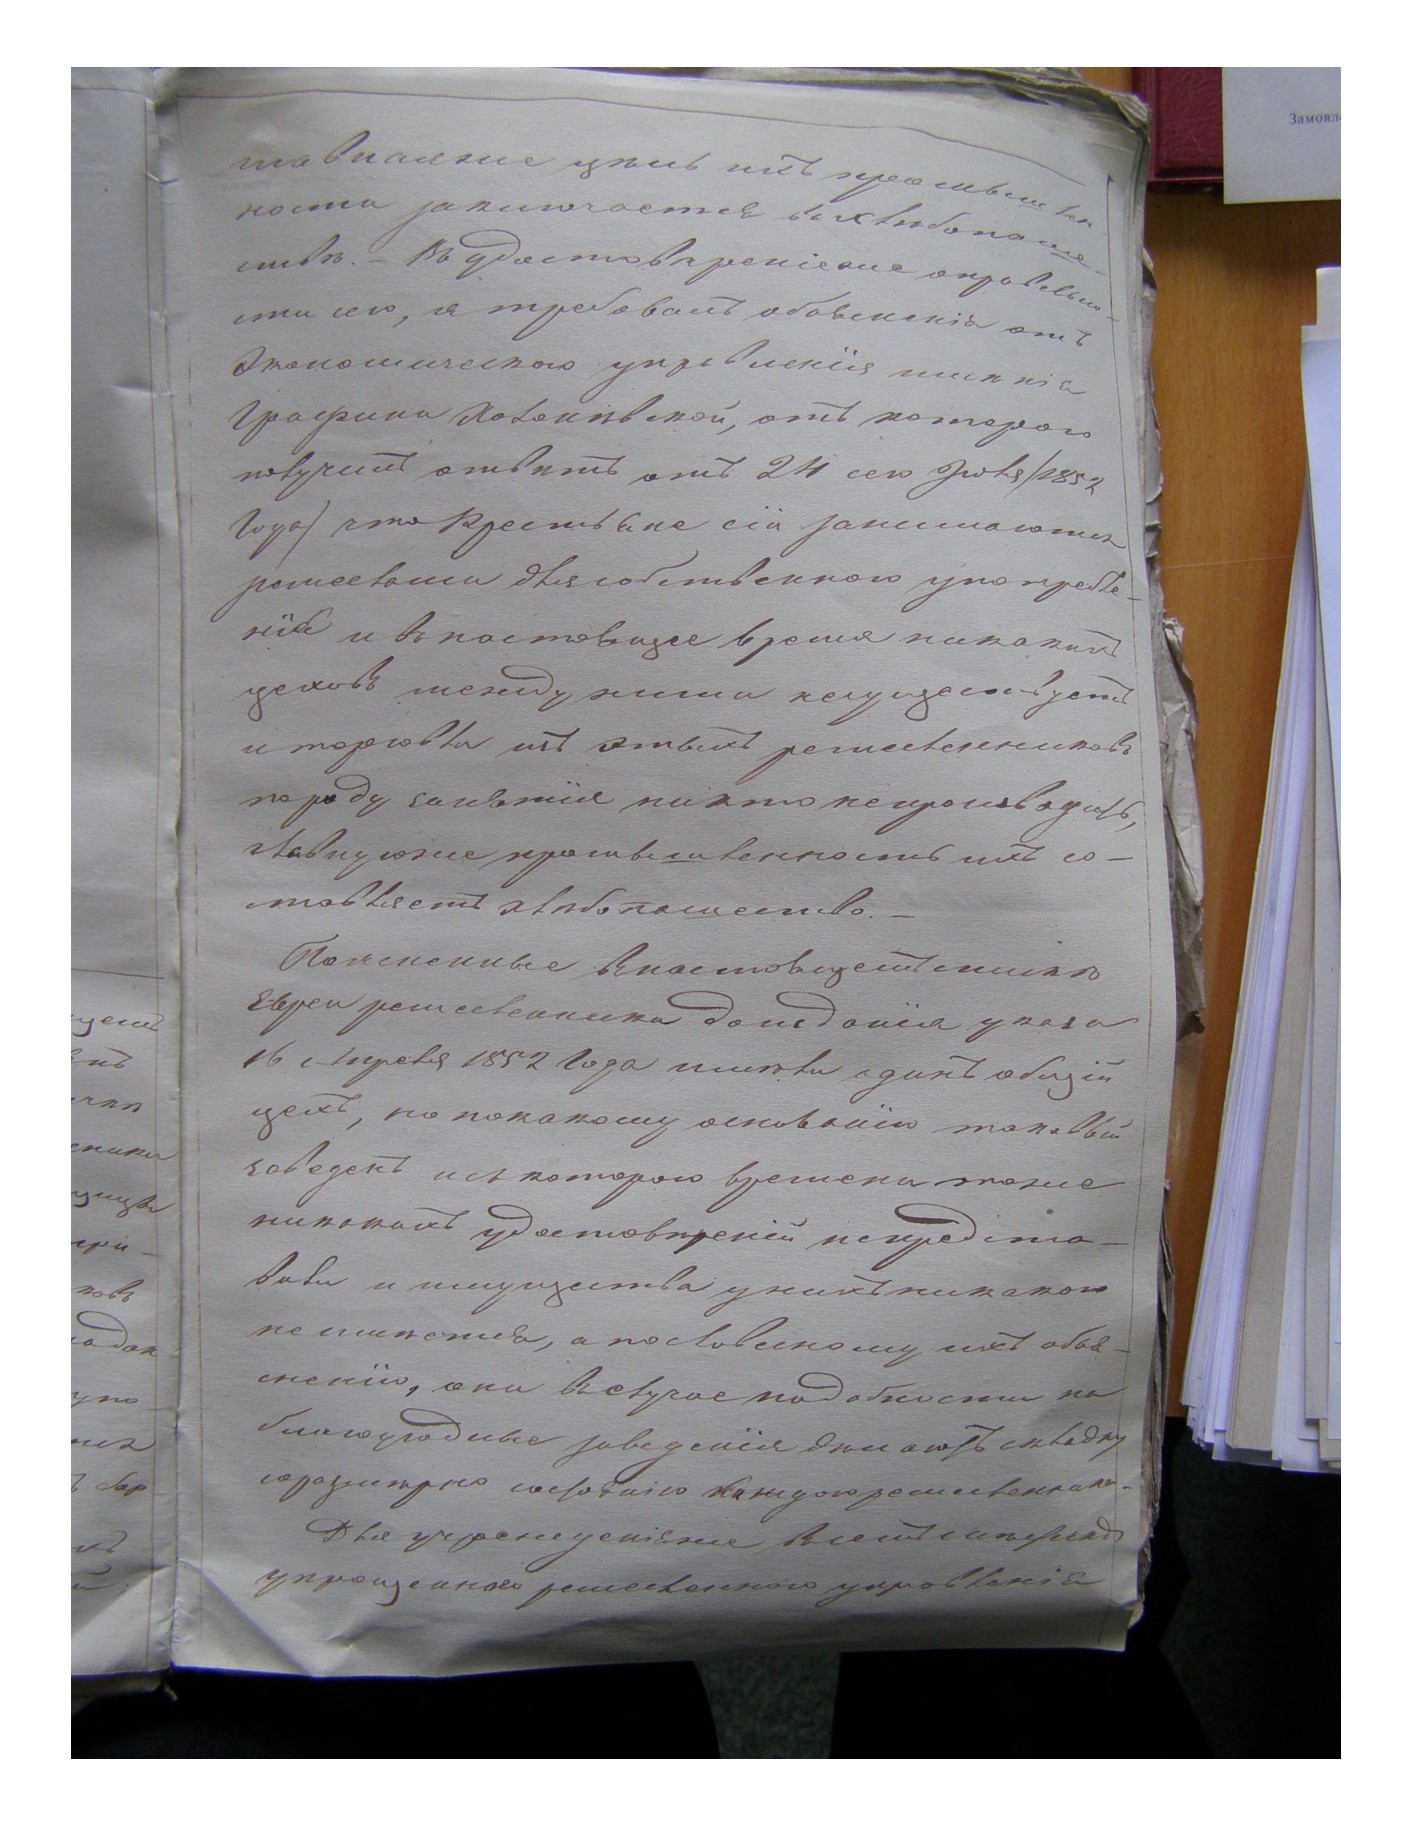 Замовл
главная же цель ихъ промышлен
ности заключается въ хлебопаше-
ствѣ. – Въ удостовѣреніеже справедливо-
сти сего, я требовалъ объясненія отъ
Экономическаго управленія имѣнія
Графини Холоневской, отъ котораго
получилъ отвѣтъ отъ 24 сего Іюля /1852
Года/ что Крестьяне сіи занимаются
ремеслами для собственного употребле-
нія и въ настоящее время никакихъ
цеховъ между ними несуществуетъ
и торговли изъ этихъ ремесленниковъ
по роду занятія никто непроизводитъ,
главную же промышленность ихъ со-
ставляетъ хлѣбопашество. –
Поясненные въ настоящемъ спискѣ
Евреи ремесленники до изданія указа
16 Апреля 1852 Года имѣли одинъ общій
цехъ, но по какому основанію таковый
заведенъ и съ котораго времени тоже
никакихъ удостовѣреній непредста-
вили и имущества у нихъ никакого
не имѣется, а по словесному ихъ объя-
сненію, они въ случае надобности на
благоугодные заведенія дѣлаютъ складку
соразмерно состоянію каждого ремесленника.
Для учрежденія же въ семъ
упрощенного ремесленного управленія
цемъ
енъ
ники
при-
ковъ
упо